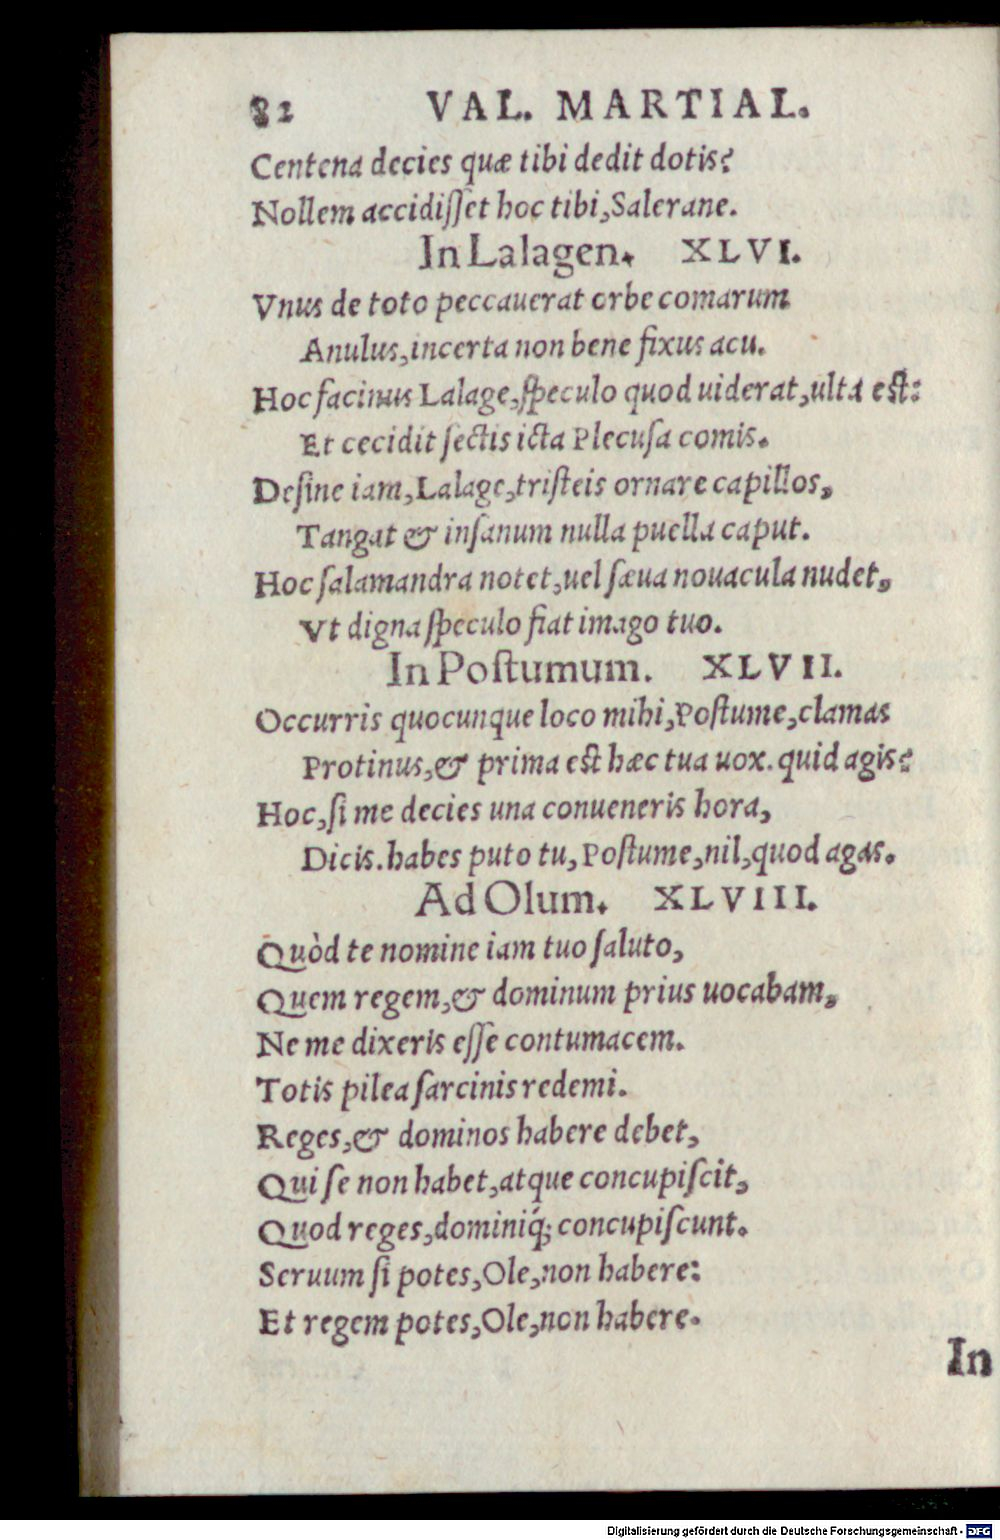 82 VAL. MARTIAL.
Centena decies quæ tibi dedit dotis?
Nollem accidiſſet hoc tibi, Salerane.
In Lalagen. XLVI.
Vnus de toto peccauerat orbe comarum
Anulus, incerta non bene fixus acu.
Hoc facinus Lalage, ſpeculo quod uiderat, ulta eſt:
Et cecidit ſectis icta Plecuſa comis.
Deſine iam, Lalage, triſteis ornare capillos,
Tangat & inſanum nulla puella caput.
Hoc ſalamandra notet, uel ſæua nouacula nudet,
Vt digna ſpeculo fiat imago tuo.
In Poſtumum. XLVII.
Occurris quocunque loco mihi, Poſtume, clamas
Protinus, & prima eſt hæc tua uox. quid agis?
Hoc, ſi me decies una conueneris hora,
Dicis. habes puto tu, Poſtume, nil, quod agas.
Ad Olum. XLVIII.
Quòd te nomine iam tuo ſaluto,
Quem regem, & dominum prius uocabam,
Ne me dixeris eſſe contumacem.
Totis pilea ſarcinis redemi.
Reges, & dominos habere debet,
Qui ſe non habet, atque concupiſcit,
Quod reges, dominiq́; concupiſcunt.
Seruum ſi potes, Ole, non habere:
Et regem potes, Ole, non habere.
In
Digitalisierung gefördert durch die Deutsche Forschungsgemeinschaft - DFG